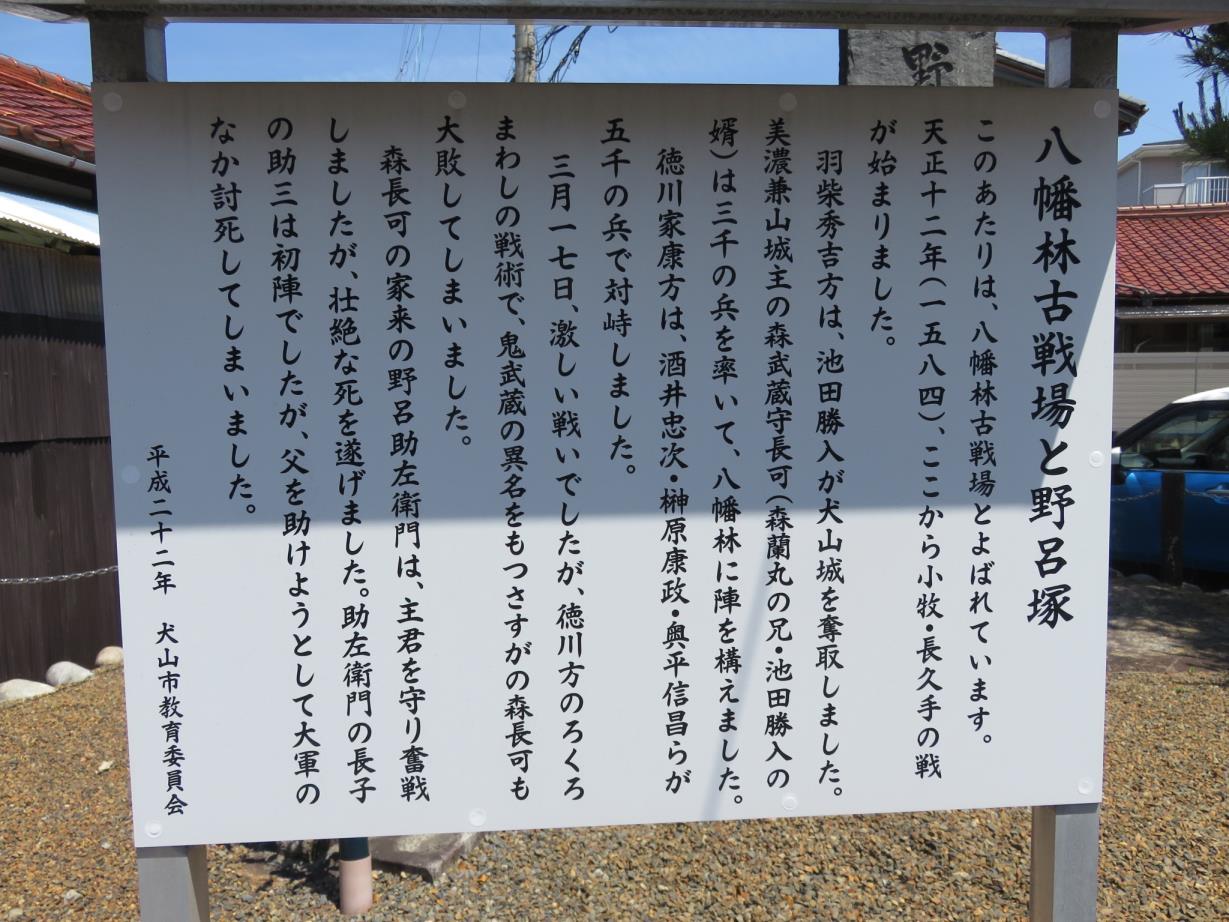 八幡林古戦場と野呂塚
このあたりは、八幡林古戦場とよばれています。
天正十二年(一五八四)、ここから小牧・長久手の戦
が始まりました。
羽柴秀吉方は、池田勝入が犬山城を奪取しました。
美濃兼山城主の森武蔵守長可(森蘭丸の兄・池田勝入の
婿)は三千の兵を率いて、八幡林に陣を構えました。
徳川家康方は、酒井忠次・榊原康政・奥平信昌らが
五千の兵で対峙しました。
三月一七日、激しい戦いでしたが、徳川方のろくろ
まわしの戦術で、鬼武蔵の異名をもつさすがの森長可も
大敗してしまいました。
森長可の家来の野呂助左衛門は、主君を守り奮戦
しましたが、壮絶な死を遂げました。助左衛門の長子
の助三は初陣でしたが、父を助けようとして大軍の
なか討死してしまいました。
平成二十二年 犬山市教育委員会
野